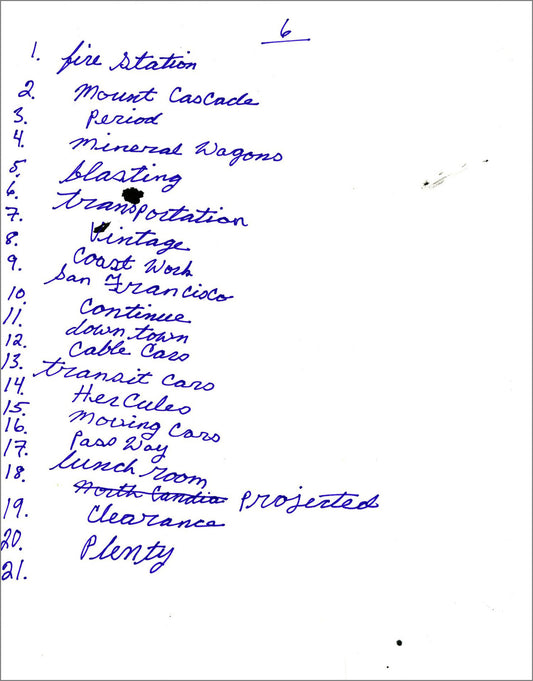 6
1. fire station
2. Mount Cascade
3. Period
4. Mineral Wagons
5. blasting
6. transportation
7. Vintage
8. Coast Work
9. San Francisco
10. Continue
11. down town
12. Cable Cars
13. transit Cars
14. Hercules
15. Moving Cars
16. Pass Way
17. lunch room
18. North Candia Projected
19. Clearance
20. Plenty
21.